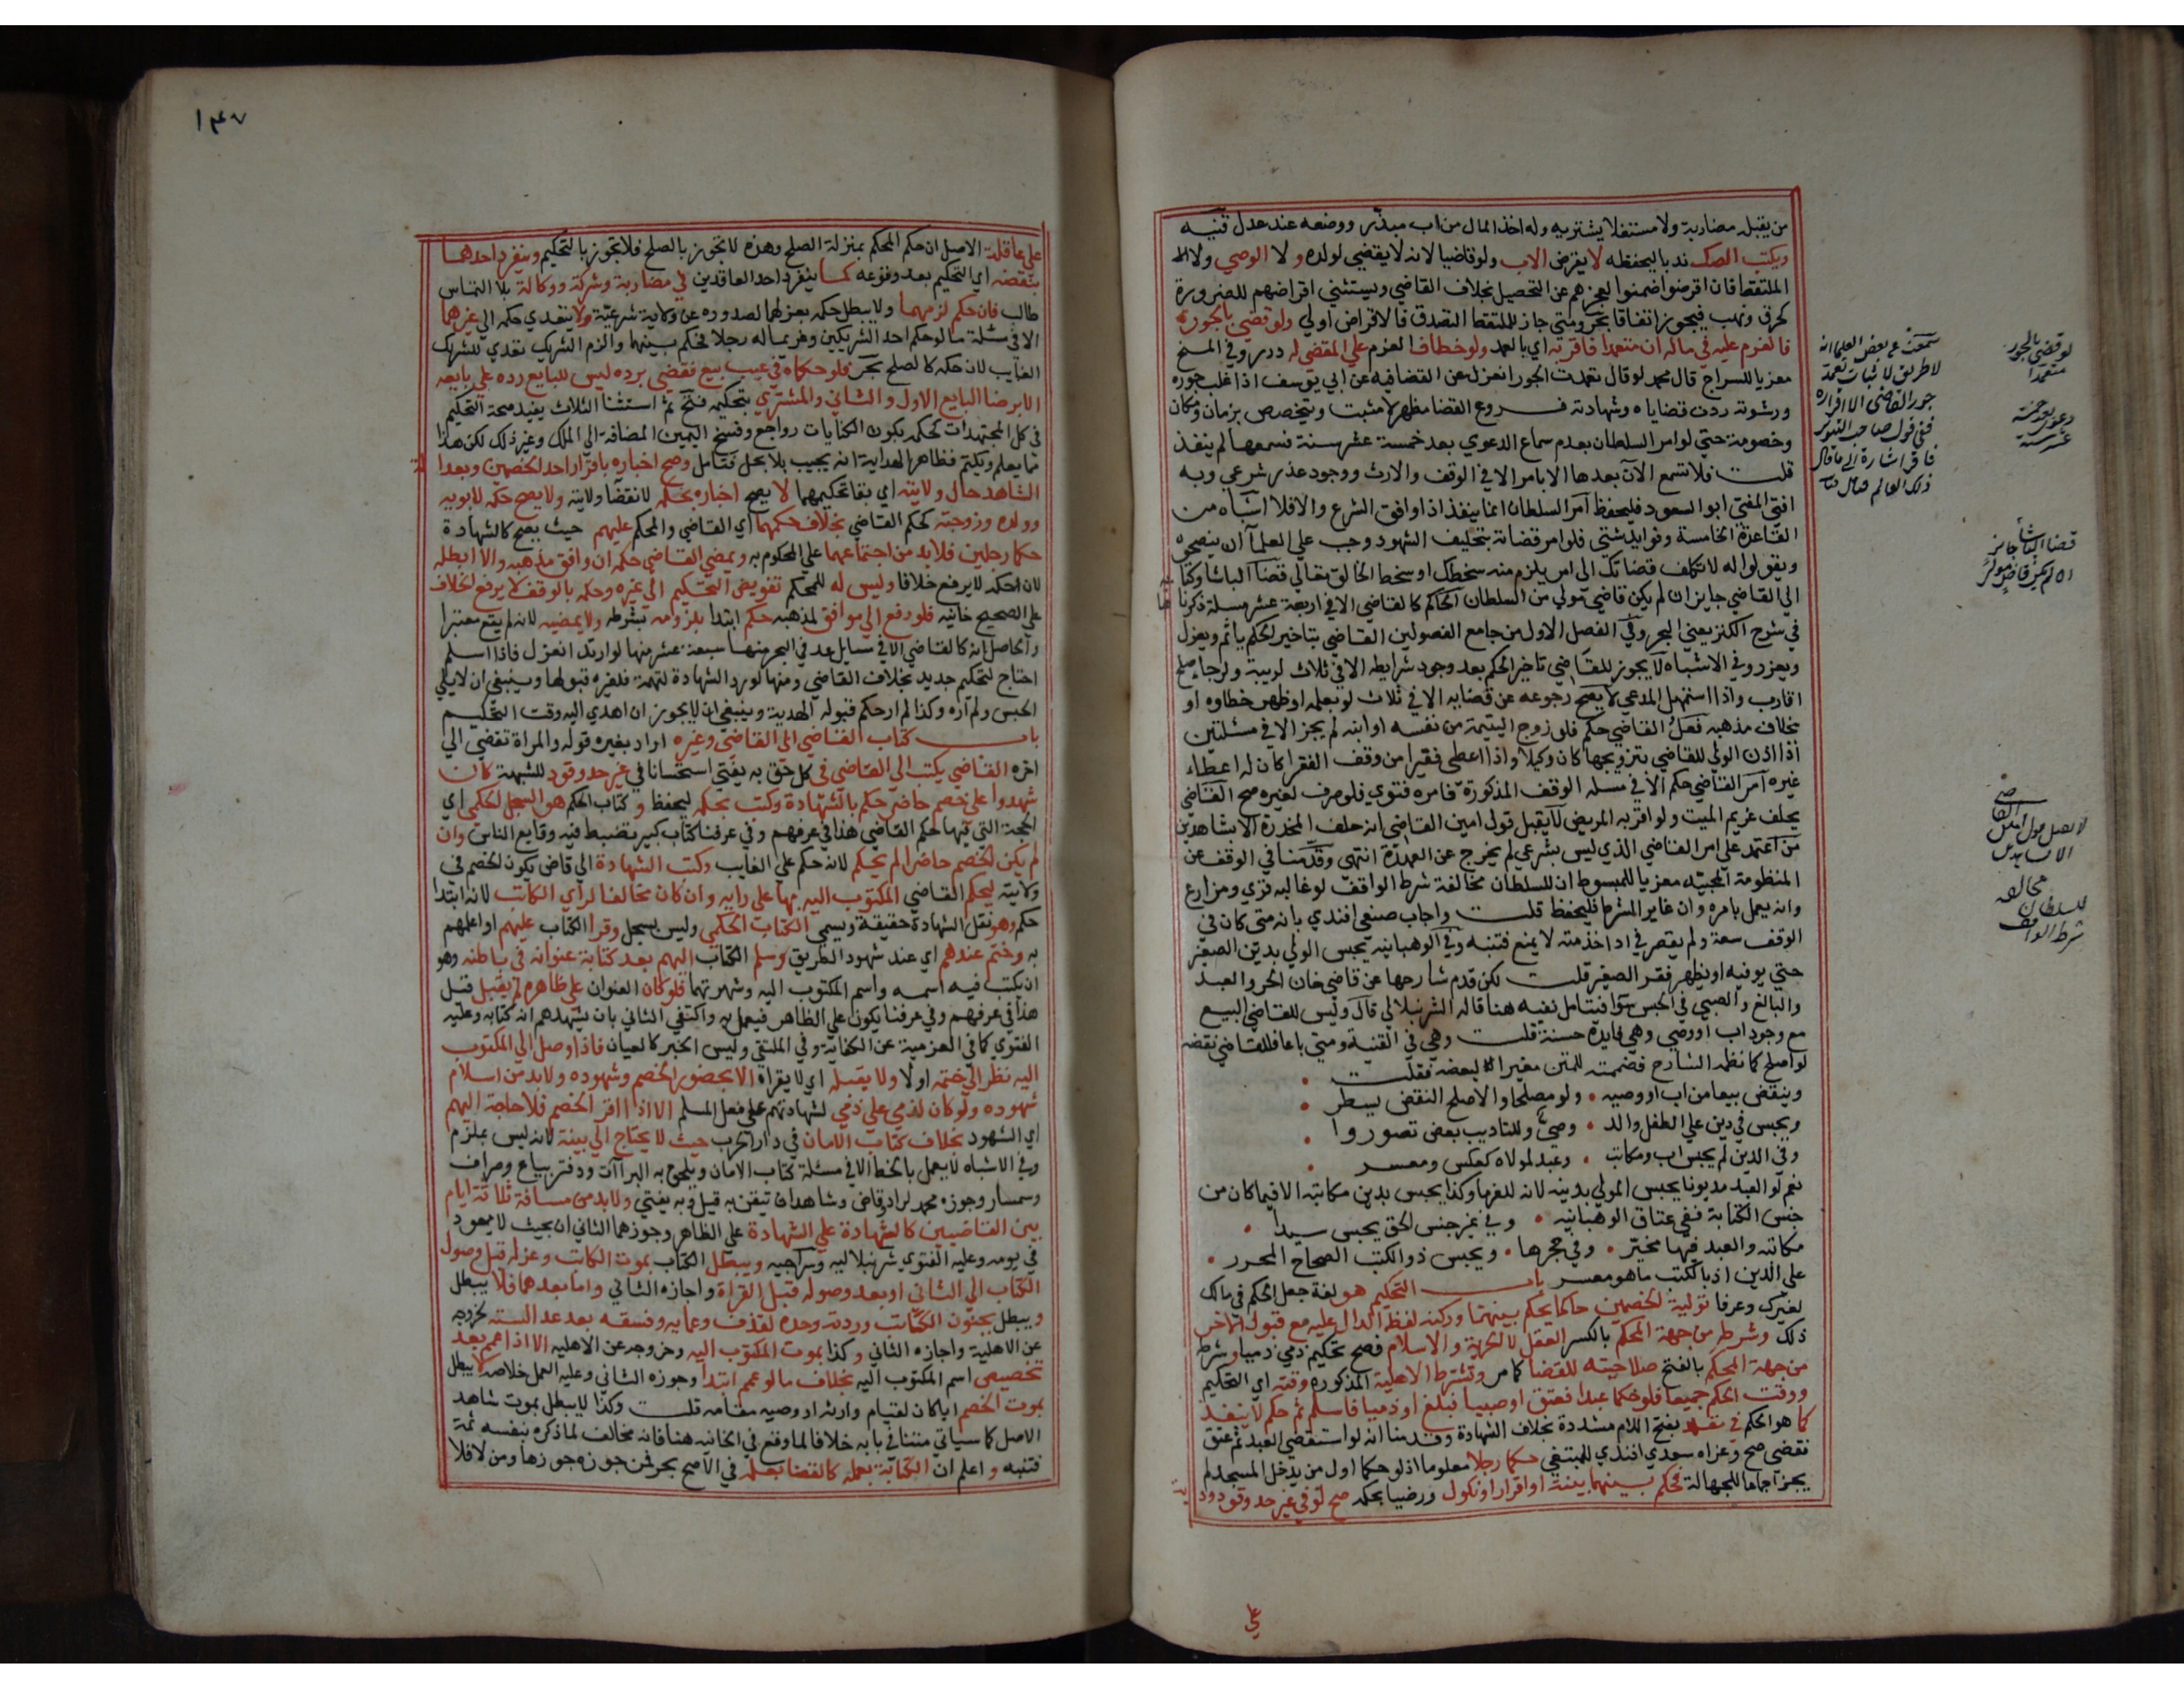 من يقبله مضاربة ولا مستغلا يشتريه وله اخذ المال من اب مبذر ووضعه عند عدل قنيه
ويكتب الصك ندبا ليحفظه لا يقرض الاب ولو قاضيا لانه لا يقضي لولده ولا الوصي ولا
الملتقط فان اقرضوا ضمنوا لعجزهم عن التحصيل بخلاف القاضي ويستثني اقراضهم للضرورة
كحرق ونهب فيجوز اتفاقا بحر ومتي جاز للملتقط التصدق فالاقراض اولي ولو قضي بالجور
فالغرم عليه في ماله ان متعمدا فاقر به اي بالعمد ولو خطا فالغرم علي المقضي له درر وفي المنح
معزيا للسراج قال محمد لو قال تعمدت الجور انعزل عن القضا فيه عن ابي يوسف اذا غلب جوره
ورشوته ردت قضاياه وشهادته فروع القضا مظهر لا مثبت ويتخصص بزمان ومكان
وخصومة حتي لو امر السلطان بعدم سماع الدعوي بعد خمسة عشر سنة فسمعها لم ينفذ
قلت فلا تسمع الآن بعدها الا بامر الا في الوقف والارث ووجود عذر شرعي وبه
افتي المفتي ابو السعود فليحفظ امر السلطان انما ينفذ اذا وافق الشرع والا فلا اشباه من
القاعدة الخامسة وفوايد شتي فلو امر قضاته بتحليف الشهود وجب علي العلما ان ينصحوه
ويقولوا له لا تكلف قضاتك الي امر يلزم منه سخطك او سخط الخالق تعالي قضا الباشا وكتابه
الي القاضي جايز ان لم يكن قاضي مولي من السلطان الحاكم كالقاضي الا في اربعة عشر مسلة ذكرناها
في شرح الكنز يعني البحر وفي الفصل الاول من جامع الفصولين القاضي بتاخير الحكم ياثم ويعزل
ويعزر وفي الاشباه لا يجوز للقاضي تاخير الحكم بعد وجود شرايطه الا في ثلاث لريبة ولرجاء صلح
اقارب واذا استمهل المدعي لا يصح رجوعه عن قضايه الا في ثلاث لو بعلمه او ظهر خطاوه او
بخلاف مذهبه فعل القاضي حكم فلو زوج اليتيمة من نفسه او ابنه لم يجز الا في مسئلتين
اذا اذن الولي للقاضي بتزويجها كان وكيلا واذا اعطي فقيرا من وقف الفقرا كان له اعطاء
غيره امر القاضي حكم الا في مسله الوقف المذكورة فامره فتوي فلو صرف لغيره صح القاضي
يحلف غريم الميت ولو اقر به المريض لا يقبل قول امين القاضي انه حلف المخدرة الا بشاهدين
من اعتمد علي امر القاضي الذي ليس بشرعي لم يخرج عن العهدة انتهي وقدمنا في الوقف عن
المنظومة المحبيه معزيا للمبسوط ان للسلطان مخالفة شرط الواقف لو غالبه قري ومزارع
وانه يعمل بامره وان غاير الشرط فليحفظ قلت واجاب صنعي افندي بانه متي كان في
الوقف سعة ولم يقصر في اداء خدمته لا يمنع فتنبه وفي الوهبانيه يحبس الولي بدين الصغير
حتي يوفيه او يظهر فقر الصغير قلت لكن قدم شارحها عن قاضي خان الحر والعبد
والبالغ والصبي في الحبس سوا فيتامل نفيه هنا قاله الشرنبلالي قال وليس للقاضي البيع
مع وجود اب او وصي وهي فايدة حسنة قلت وهي في القنية ومتي باعا فللقاضي نقضه
لو اصلح كما نظمه الشارح فضممته للمتن مغيرا لبعضه فقلت
وينقض بيعا من اب او وصيه ٠ ولو مصلحا والاصلح النقض يسطر
ويحبس في دين علي الطفل والد ٠ وصي وللتاديب بعض تصوروا
وفي الدين لم يحبس اب ومكاتب ٠ وعبد لمولاه كعكس ومعسر
نعم لو العبد مديونا يحبس المولي بدينه لانه للغرما وكذا يحبس بدين مكاتبه الا فيما كان من
جنس الكتابة ففي عتاق الوهبانيه ٠ وفي غير جنس الحق يحبس سيدا ٠
مكاتبه والعبد فيها مخير ٠ وفي حجرها ٠ ويحبس ذو الكتب الصحاح المحرر ٠
علي الدين اذ بالكتب ما هو معسر باب التحكيم هو لغة جعل الحكم في مالك
لغيرك وعرفا تولية الخصمين حاكما يحكم بينهما وركنه لفظه الدال عليه مع قبول الاخر
ذلك وشرطه من جهة المحكم بالكسر العقل لا الحرية والاسلام فصح تحكيم ذمي ذميا وشرطه
من جهة المحكم بالفتح صلاحيته للقضا كما مر وتشترط الاهلية المذكوره وقته اي التحكيم
ووقت الحكم جميعا فلو حكما عبدا فعتق او صبيا فبلغ او ذميا فاسلم ثم حكم لا ينفذ
كما هو الحكم في مقلد بفتح اللام مشددة بخلاف الشهادة وقدمنا انه لو استقضي العبد ثم عتق
فقضي صح وعزاه سعدي افندي للمبتغي حكما رجلا معلوما اذ لو حكما اول من يدخل المسجد لم
يجز اجماعا للجهالة فحكم بينهما ببينة او اقرار او نكول ورضيا بحكمه صح لو في غير حد وقود ودية
علي
لو قضي بالجور
متعمدا
سمعت عن بعض العلما انه
لا طريق لاثبات تعمد
جور القاضي الا اقراره
ففي قول صاحب التنوير
فاقر اشارة الي ما قال
ذلك العالم
دعوي بعد خمسة
عشر سنة
قضا الباشا جايز
ان لم يكن قاضي مولي
لا يقبل قول امين القاضي
الا بشاهدين
مخالفة
للسلطان
شرط الواقف
١٤٧
علي عاقلة الاصل ان حكم المحكم بمنزلة الصلح وهذه لا تجوز بالصلح فلا تجوز بالتحكيم وينفرد احدهما
بنقضه اي التحكيم بعد وقوعه كما ينفرد احد العاقدين في مضاربة وشركة ووكالة بلا التماس
طالب فان حكم لزمهما ولا يبطل حكمه بعزلهما لصدوره عن ولاية شرعية ولا يتعدي حكمه الي غيرهما
الا في مسئلة ما لو حكم احد الشريكين وغريما له رجلا فحكم بينهما والزم الشريك تعدي للشريك
الغايب لان حكمه كالصلح بحر فلو حكماه في عيب بيع فقضي برده ليس للبايع رده علي بايعه
الا برضا البايع الاول والثاني والمشتري بتحكيمه فتح ثم استثنا الثلاث يفيد صحة التحكيم
في كل المجتهدات كحكمه بكون الكنايات رواجع وفسخ اليمين المضافة الي الملك وغير ذلك لكن هذا
مما يعلم ويكتم فظاهر الهداية انه يجيب بلا يحل فتامل وصح اخباره باقرار احد الخصمين وبعدالة
الشاهد حال ولايته اي بقا تحكيمهما لا يصح اخباره بحكمه لانقضا ولايته ولا يصح حكمه لابويه
وولده وزوجته كحكم القاضي بخلاف حكمهما اي القاضي والمحكم عليهم حيث يصح كالشهادة
حكما رجلين فلا بد من اجتماعهما علي المحكوم به ويمضي القاضي حكمه ان وافق مذهبه والا ابطله
لان حكمه لا يرفع خلافا وليس له للمحكم تفويض التحكيم الي غيره وحكمه بالوقف لا يرفع الخلاف
علي الصحيح خانيه فلو رفع الي موافق لمذهبه حكم ابتدا بلزومه بشرطه ولا يمضيه لانه لم يقع معتبرا
والحاصل انه كالقاضي الا في مسايل عد في البحر منها سبعة عشر منها لو ارتد انعزل فاذا اسلم
احتاج لتحكيم جديد بخلاف القاضي ومنها لو رد الشهادة لتهمة فلغيره قبولها وينبغي ان لا يلي
الحبس ولم اره وكذا لم ار حكم قبوله الهدية وينبغي ان لا يجوز ان اهدي اليه وقت التحكيم
باب كتاب القاضي الي القاضي وغيره اراد بغيره قوله والمراة تقضي الي
اخره القاضي يكتب الي القاضي في كل حق به يفتي استحسانا في غير حد وقود للشبهة فان
شهدوا علي خصم حاضر حكم بالشهادة وكتب بحكمه ليحفظ وكتاب الحكم هو السجل الحكمي اي
الحجة التي فيها حكم القاضي هذا في عرفهم وفي عرفنا كتاب كبير تضبط فيه وقايع الناس وان
لم يكن الخصم حاضرا لم يحكم لانه حكم علي الغايب وكتب الشهادة الي قاض يكون الخصم في
ولايته ليحكم القاضي المكتوب اليه بها علي رايه وان كان مخالفا لراي الكاتب لانه ابتدا
حكم وهو نقل الشهادة حقيقة ويسمي الكتاب الحكمي وليس بسجل وقرا الكتاب عليهم او اعلمهم
به وختم عندهم اي عند شهود الطريق وسلم الكتاب اليهم بعد كتابة عنوانه في باطنه وهو
ان يكتب فيه اسمه واسم المكتوب اليه وشهرتهما فلو كان العنوان علي ظاهره لم يقبل قيل
هذا في عرفهم وفي عرفنا يكون علي الظاهر فيعمل به واكتفي الثاني بان يشهدهم انه كتابه وعليه
الفتوي كما في العزمية عن الكفاية وفي الملتقي وليس الخبر كالعيان فاذا وصل الي المكتوب
اليه نظر الي ختمه اولا ولا يقبله اي لا يقراه الا بحضور الخصم وشهوده ولا بد من اسلام
شهوده ولو كان لذمي علي ذمي لشهادتهم علي فعل المسلم الا اذا اقر الخصم فلا حاجة اليهم
اي الشهود بخلاف كتاب الامان في دار الحرب حيث لا يحتاج الي بينة لانه ليس بملزم
وفي الاشباه لا يعمل بالخط الا في مسئلة كتاب الامان ويلحق به البراات ودفتر بياع وصراف
وسمسار وجوزه محمد لراو وقاض وشاهد ان تيقن به قيل وبه يفتي ولا بد من مسافة ثلاثة ايام
بين القاضيين كالشهادة علي الشهادة علي الظاهر وجوزهما الثاني ان بحيث لا يعود
في يومه وعليه الفتوي شرنبلاليه وسراجيه ويبطل الكتاب بموت الكاتب وعزله قبل وصول
الكتاب الي الثاني او بعد وصوله قبل القراة واجازه الثاني واما بعدهما فلا يبطل
ويبطل بجنون الكاتب وردته وحده لقذف وعمايه وفسقه بعد عدالته لخروجه
عن الاهلية واجازه الثاني وكذا بموت المكتوب اليه وخروجه عن الاهليه الا اذا عمم بعد
تخصيص اسم المكتوب اليه بخلاف ما لو عمم ابتدا وجوزه الثاني وعليه العمل خلاصه لا يبطل
بموت الخصم ايا كان لقيام وارثه او وصيه مقامه قلت وكذا لا يبطل بموت شاهد
الاصل كما سياتي متنا في بابه خلافا لما وقع في الخانيه هنا فانه مخالف لما ذكره بنفسه ثمة
فتنبه واعلم ان الكتابة بعلمه كالقضا بعلمه في الاصح بحر فمن جوزه جوزها ومن لا فلا